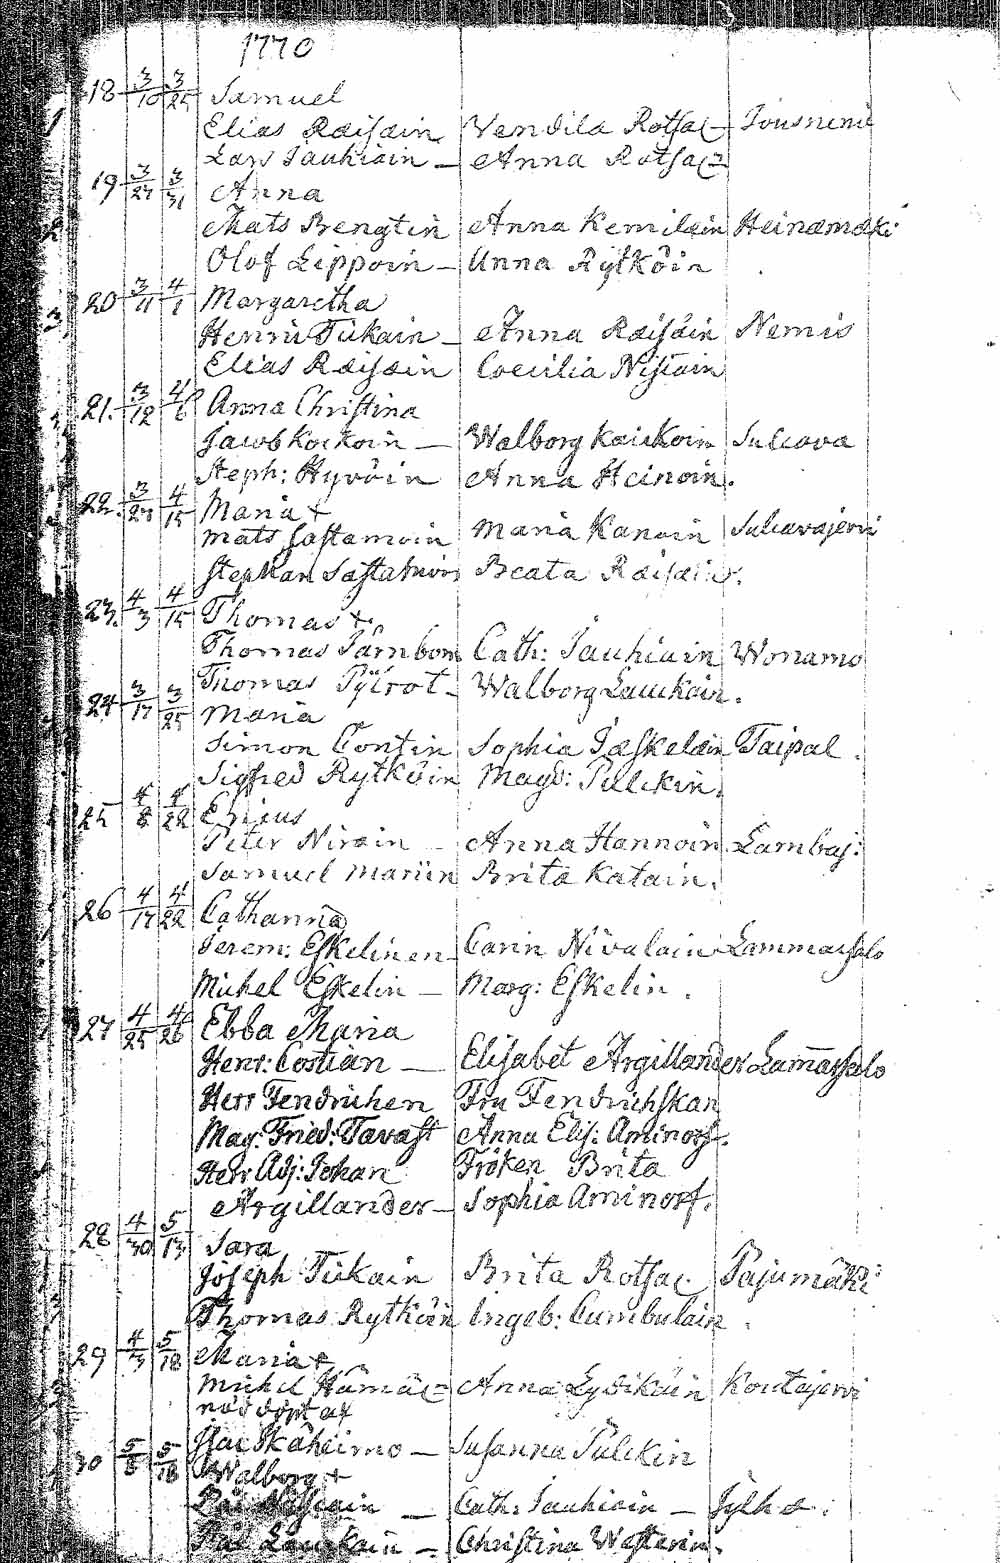 1770
18 3/10 3/25 Samuel
Elias Räisäin Vendila Rotsac- Iousnemi
Lars Jauhiain - Anna Rotsac-
19 3/27 3/31 Anna
Mats Bengtin Anna Kemiläin Heinämäki
Olof Lippoin - Anna Rytköin
20 3/11 4/1 Margaretha
Henric Tickain - Anna Räisäin Nemis
Elias Räisäin Coecilia Nissain
21. 3/12 4/6 Anna Christina
Jacob Koikoin - Walborg Koickoin Sulcava
Steph: Hyvöin Anna Heinoin.
22. 3/27 4/15 Maria +
Mats Sastamoin Maria Kanain Sulcavajervi
Stephan Sastamoin Beata Räisäin.
23. 4/3 4/15 Thomas +
Thomas Järnbom Cath: Jauhiain Wonamo
Thomas - Walborg Lauckain.
24 3/17 3/25 Maria
Simon Contin Sophia Jäskeläin Taipal.
Sigfred Rytköin Magd: Pulckin.
25 4/8 4/22 Ericus
Peter Nirain - Anna Hannoin Lambaj:
Samuel Mariin Brita Katain.
26 4/17 4/22 Catharina
Jerem: Eskelinen - Carin Nivalain Lammassalo
Michel Eskelin - Marg: Eskelin.
27 4/25 4/26 Ebba Maria
Henr: Costian - Elisabet Argillander Lam̄assalo
Herr Fendrichen Fru Fendrichskan
Mag: Fried: Tavast Anna Elis: Aminorf.
Herr Adj: Johan Fröken Brita
Argillander - Sophia Aminorf.
28 4/30 5/13 Sara
Joseph Tickain Brita Rotsac. Pajumäki
Thomas Rytköin Ingeb: Cumbulain.
29 4/3 5/18 Maria +
Michel Hämäl= Anna Lydikäin Koutajervi
nöd döpt af
Isac Skäheimo - Susanna Pulckin
30 5/8 5/18 Walborg +
Pål - Cath: Jauhiain - Sylke.
Pål Lauckain - Christina Westerin.